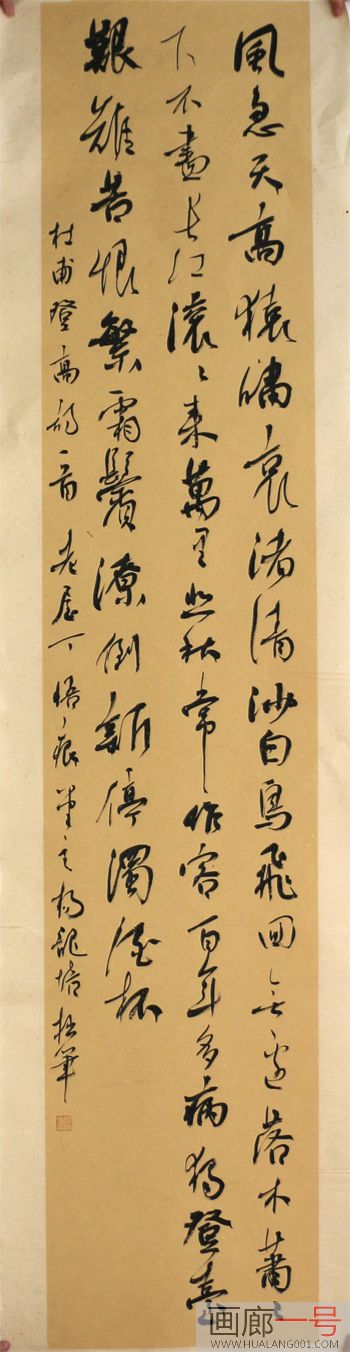 風急天高猿嘯哀渚清沙白鳥飛回無邊落木蕭
下不盡長江滾々來萬里悲秋常作客百年多病獨登臺
艱難苦恨繁霜鬢潦倒新停濁酒杯
杜甫登高詩一首 悟痕堂主楊龍培拙筆
画廊一号
WWW.HUALANG001.COM